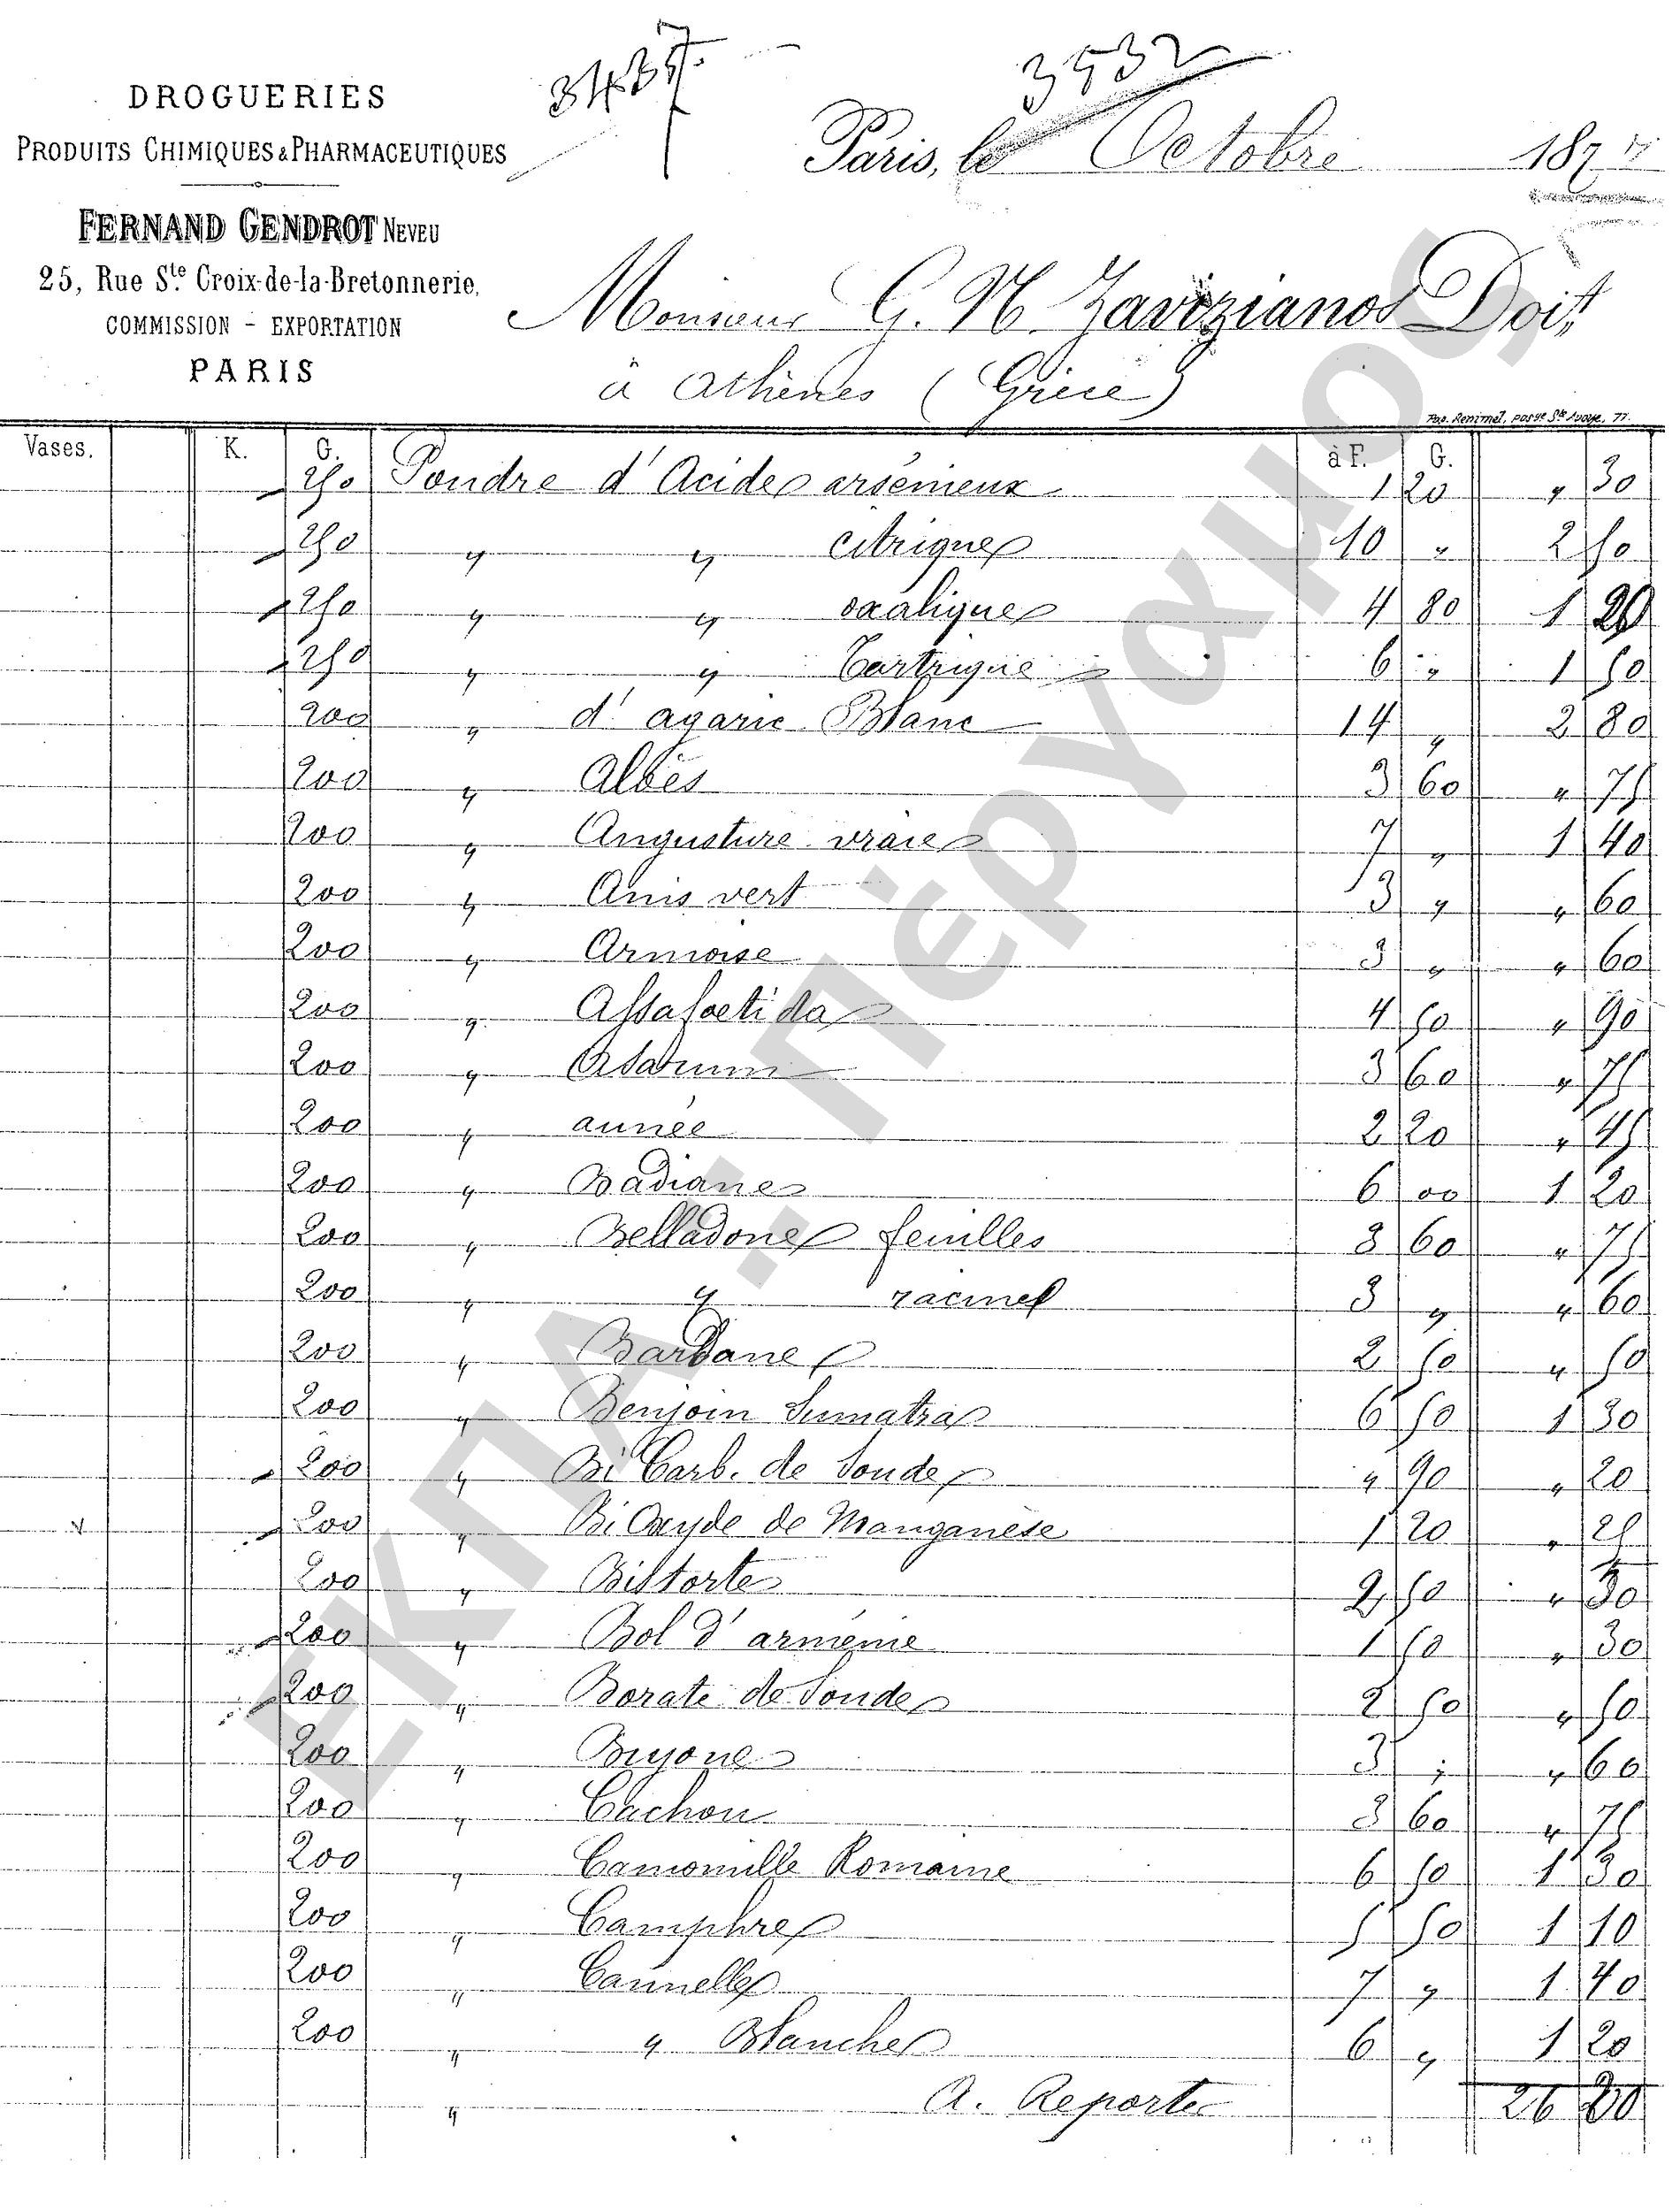 3437
3532
DROGUERIES
PRODUITS CHIMIQUES & PHARMACEUTIQUES
Paris, le Octobre 187
FERNAND GENDROT NEVEU
25, Rue Ste Croix-de-la-Bretonnerie,
COMMISSION - EXPORTATION
PARIS
Monsieur G. N. Zavizianos Doit
à Athènes (Grèce)
Vases. K. G. à F. G.
250 Poudre d'Acide arsénieux 1 20 " 30
250 " " citrique 10 " 2 50
250 " " oxalique 4 80 1 20
250 " " Tartrique 6 " 1 50
200 " d'agaric Blanc 14 " 2 80
200 " Aloès 3 60 " 75
200 " Angusture vraie 7 " 1 40
200 " Anis vert 3 " " 60
200 " Armoise 3 " " 60
200 " Assafoetida 4 50 " 90
200 " Asarum 3 60 " 75
200 " aunée 2 20 " 45
200 " Badiane 6 00 1 20
200 " Belladone feuilles 3 60 " 75
200 " " racine 3 " " 60
200 " Bardane 2 50 " 50
200 " Benjoin Sumatra 6 50 1 30
200 " Bi Carb. de Soude " 90 " 20
v 200 " Bi Oxyde de Manganèse 1 20 " 25
200 " Bistorte 2 50 "
200 " Bol d'arménie 1 50 " 30
200 " Borate de Soude 2 50 " 50
200 " Bryone 3 " " 60
200 " Cachou 3 60 " 75
200 " Camomille Romaine 6 50 1 30
200 " Camphre 5 50 1 10
200 " Cannelle 7 " 1 40
200 " " Blanche 6 " 1 20
" A. Reporter 26
ΕΚΠΑ.: Πέργαμος